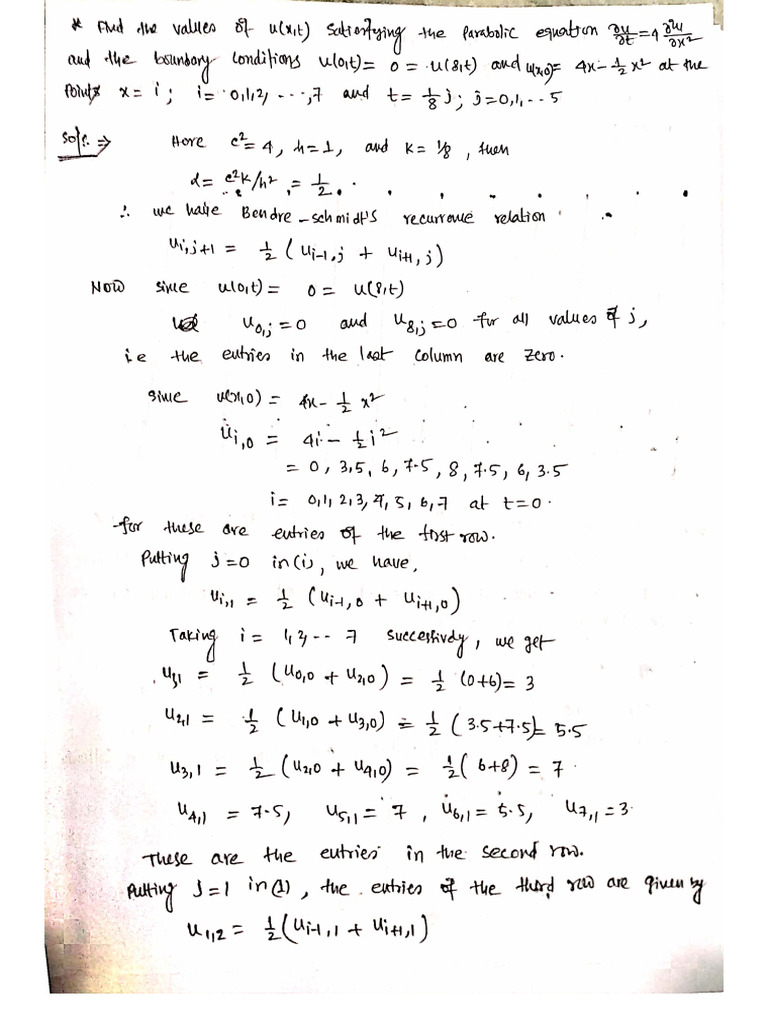 * Find the values of u(x,t) satisfying the parabolic equation ∂u/∂t = 4 ∂²u/∂x²
and the boundary conditions u(0,t) = 0 = u(8,t) and u(x,0) = 4x - 1/2 x² at the
points x = i ; i = 0,1,2, ...,7 and t = 1/8 j ; j = 0,1,..5
Soln. ⇒ Here c² = 4, h = 1, and k = 1/8, then
α = c²k/h² = 1/2.
∴ we have Bendre-schmidt's recurrence relation
ui,j+1 = 1/2 (ui-1,j + ui+1,j)
Now since u(0,t) = 0 = u(8,t)
u0,j = 0 and u8,j = 0 for all values of j,
i.e the entries in the last column are zero.
since u(x,0) = 4x - 1/2 x²
ui,0 = 4i - 1/2 i²
= 0, 3.5, 6, 7.5, 8, 7.5, 6, 3.5
i = 0,1,2,3,4,5,6,7 at t=0.
for these are entries of the first row.
Putting j=0 in (i), we have,
ui,1 = 1/2 (ui-1,0 + ui+1,0)
Taking i = 1,2,-- 7 successively, we get
u1,1 = 1/2 (u0,0 + u2,0) = 1/2 (0+6) = 3
u2,1 = 1/2 (u1,0 + u3,0) = 1/2 (3.5+7.5) = 5.5
u3,1 = 1/2 (u2,0 + u4,0) = 1/2 (6+8) = 7.
u4,1 = 7.5, u5,1 = 7, u6,1 = 5.5, u7,1 = 3.
These are the entries in the second row.
Putting j=1 in (1), the entries of the third row are given by
u1,2 = 1/2 (ui-1,1 + ui+1,1)